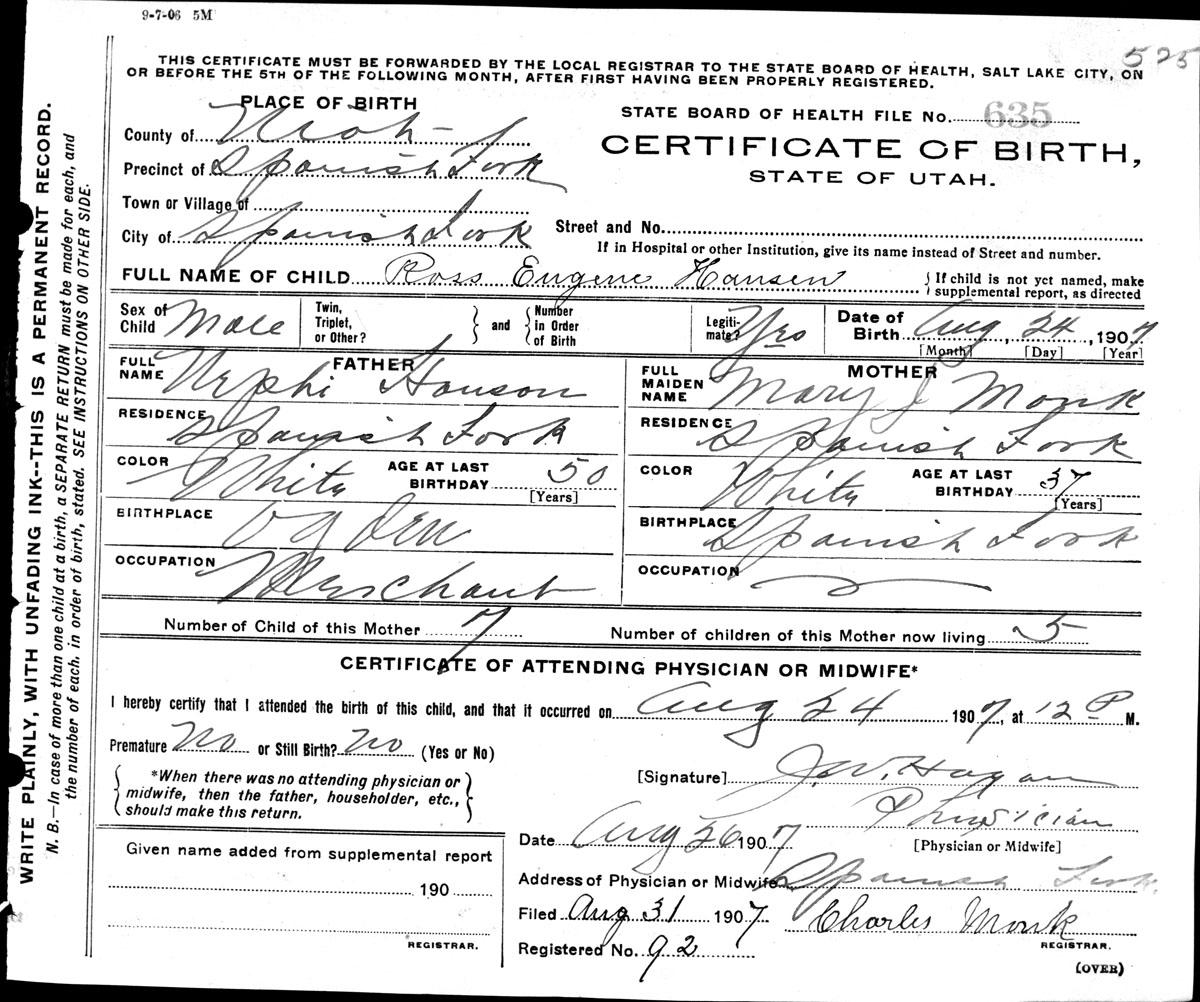 9-7-06 5M
525
THIS CERTIFICATE MUST BE FORWARDED BY THE LOCAL REGISTRAR TO THE STATE BOARD OF HEALTH, SALT LAKE CITY, ON
OR BEFORE THE 5TH OF THE FOLLOWING MONTH, AFTER FIRST HAVING BEEN PROPERLY REGISTERED.
WRITE PLAINLY, WITH UNFADING INK--THIS IS A PERMANENT RECORD.
N. B.—In case of more than one child at a birth, a SEPARATE RETURN must be made for each, and
the number of each, in order of birth, stated. SEE INSTRUCTIONS ON OTHER SIDE.
PLACE OF BIRTH
STATE BOARD OF HEALTH FILE No. 635
County of Utah
CERTIFICATE OF BIRTH,
Precinct of Spanish Fork
STATE OF UTAH.
Town or Village of
City of Spanish Fork
Street and No.
If in Hospital or other Institution, give its name instead of Street and number.
FULL NAME OF CHILD Ross Eugene Hansen
If child is not yet named, make
supplemental report, as directed
Sex of Child Male
Twin, Triplet, or Other?
and
Number in Order of Birth
Legiti-mate? Yes
Date of Birth Aug 24, 1907
[Month] [Day] [Year]
FATHER
FULL NAME Nephi Hanson
RESIDENCE Spanish Fork
COLOR White
AGE AT LAST BIRTHDAY 50
[Years]
BIRTHPLACE Ogden
OCCUPATION Merchant
MOTHER
FULL MAIDEN NAME Mary J Monk
RESIDENCE Spanish Fork
COLOR White
AGE AT LAST BIRTHDAY 37
[Years]
BIRTHPLACE Spanish Fork
OCCUPATION
Number of Child of this Mother 7
Number of children of this Mother now living 5
CERTIFICATE OF ATTENDING PHYSICIAN OR MIDWIFE*
I hereby certify that I attended the birth of this child, and that it occurred on Aug 24 1907, at 12 P M.
Premature No or Still Birth? No (Yes or No)
*When there was no attending physician or
midwife, then the father, householder, etc.,
should make this return.
[Signature] J. W. Hagan
Physician
[Physician or Midwife]
Date Aug 26 1907
Given name added from supplemental report
190
REGISTRAR.
Address of Physician or Midwife Spanish Fork.
Filed Aug 31 1907
Charles Monk
REGISTRAR.
Registered No. 92
(OVER)